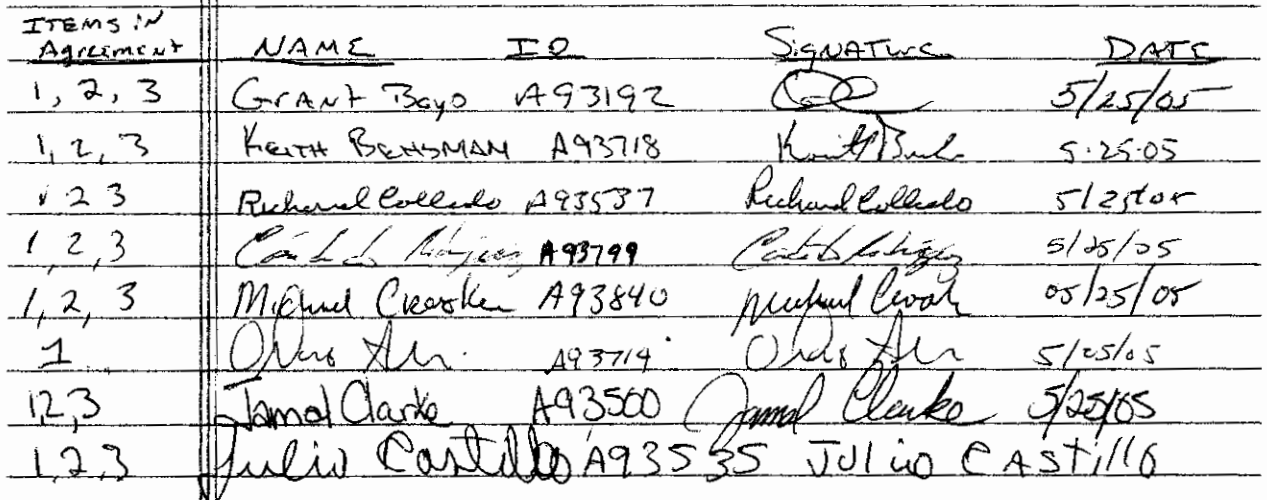 ITEMS IN
Agreement NAME ID SIGNATURE DATE
1, 2, 3 GRANT Bayo A93192 5/25/05
1, 2, 3 KEITH BEHSMAN A93718 5.25.05
1 2 3 Richard Collado A93537 Richard Collado 5/25/05
1, 2, 3 A93799 5/25/05
1, 2, 3 Michael A93840 Michael 05/25/05
1 A93714 5/25/05
1,2,3 Jamal Clarke A93500 Jamal Clarke 5/25/05
1,2,3 Julio Castillo A93535 JULio CASTillo